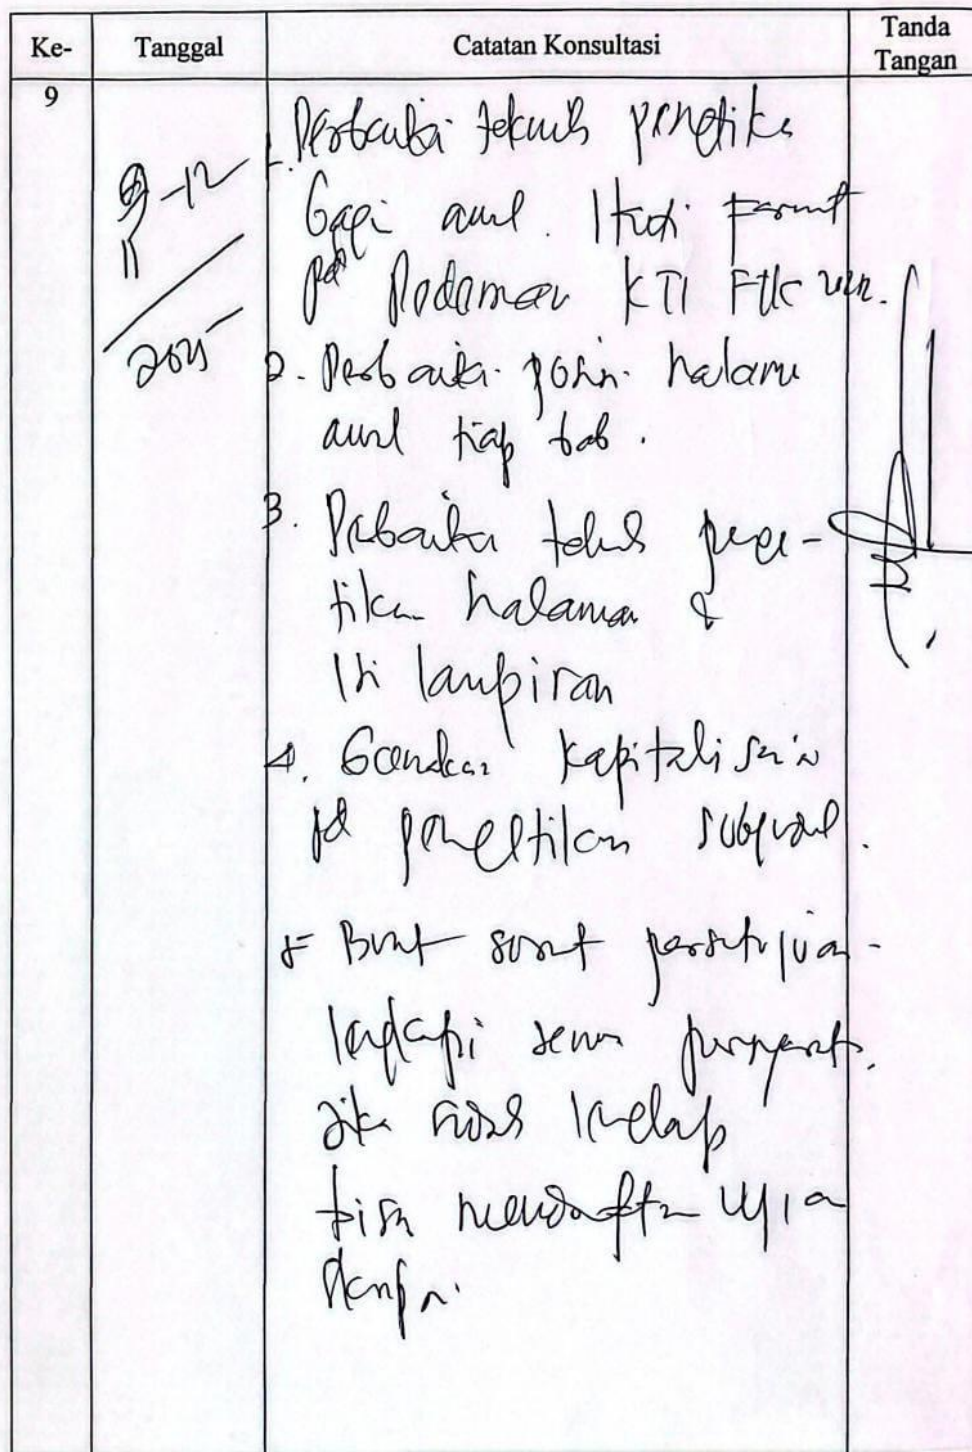 Ke- Tanggal Catatan Konsultasi Tanda Tangan
9
1. Perbaiki teknis pengetikan
Bagi awal. Ikuti format
pd Pedoman KTI FTK UIN.
2. Perbaiki posisi halaman
awal tiap bab.
3. Perbaiki teknis penge-
tikan halaman &
Isi lampiran
4. Gunakan kapitalisasi
pd pengetikan subjudul.
5 Buat surat persetujuan
lengkapi semua persyaratan.
Jika sudah lengkap
bisa mendaftar ujian